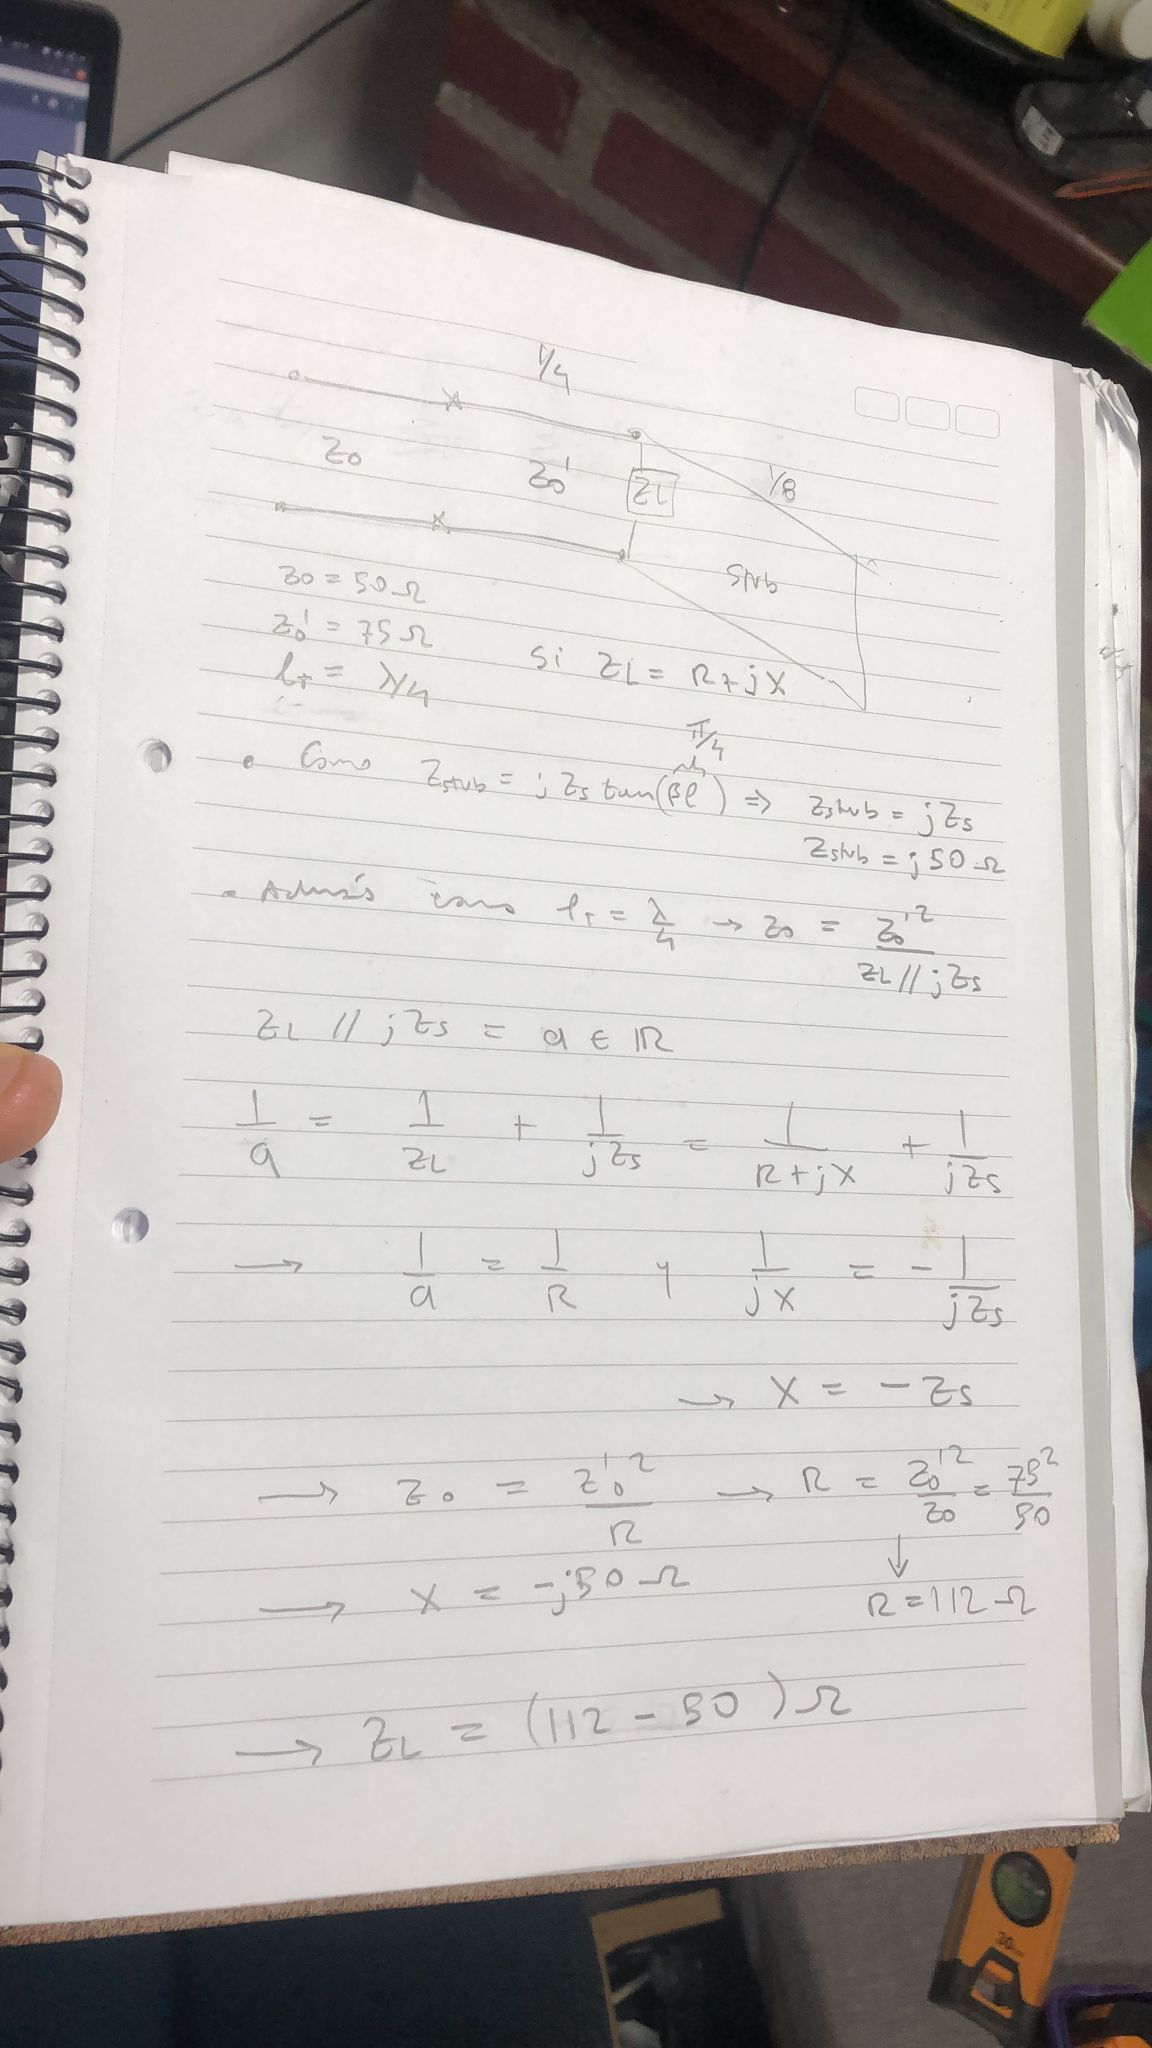 1/4
Z0 Z0' ZL 1/8
Stub
Z0 = 50 Ω
Z0' = 75 Ω
lT = λ/4 Si ZL = R+jX
π/4
• Como Zstub = j Zs tan(βl) => Zstub = jZs
Zstub = j50 Ω
• Además como lT = λ/4 → Z0 = Z0'² / (ZL // jZs)
ZL // jZs = a ∈ ℝ
1/a = 1/ZL + 1/jZs = 1/(R+jX) + 1/jZs
→ 1/a = 1/R y 1/jX = - 1/jZs
→ X = - Zs
→ Z0 = Z0'²/R → R = Z0'²/Z0 = 75²/50
→ X = -j50 Ω ↓ R = 112 Ω
→ ZL = (112 - 50) Ω